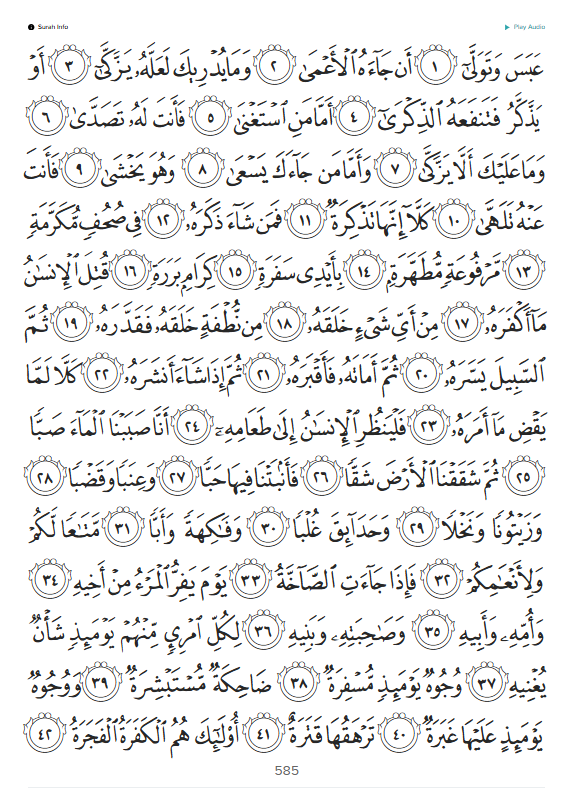 Surah Info
Play Audio
عَبَسَ وَتَوَلَّىٰٓ ١ أَن جَآءَهُ ٱلْأَعْمَىٰ ٢ وَمَا يُدْرِيكَ لَعَلَّهُۥ يَزَّكَّىٰٓ ٣ أَوْ
يَذَّكَّرُ فَتَنفَعَهُ ٱلذِّكْرَىٰٓ ٤ أَمَّا مَنِ ٱسْتَغْنَىٰ ٥ فَأَنتَ لَهُۥ تَصَدَّىٰ ٦
وَمَا عَلَيْكَ أَلَّا يَزَّكَّىٰ ٧ وَأَمَّا مَن جَآءَكَ يَسْعَىٰ ٨ وَهُوَ يَخْشَىٰ ٩ فَأَنتَ
عَنْهُ تَلَهَّىٰ ١٠ كَلَّآ إِنَّهَا تَذْكِرَةٌ ١١ فَمَن شَآءَ ذَكَرَهُۥ ١٢ فِى صُحُفٍ مُّكَرَّمَةٍ
١٣ مَّرْفُوعَةٍ مُّطَهَّرَةٍۭ ١٤ بِأَيْدِى سَفَرَةٍ ١٥ كِرَامٍۭ بَرَرَةٍ ١٦ قُتِلَ ٱلْإِنسَٰنُ
مَآ أَكْفَرَهُۥ ١٧ مِنْ أَىِّ شَىْءٍ خَلَقَهُۥ ١٨ مِن نُّطْفَةٍ خَلَقَهُۥ فَقَدَّرَهُۥ ١٩ ثُمَّ
ٱلسَّبِيلَ يَسَّرَهُۥ ٢٠ ثُمَّ أَمَاتَهُۥ فَأَقْبَرَهُۥ ٢١ ثُمَّ إِذَا شَآءَ أَنشَرَهُۥ ٢٢ كَلَّا لَمَّا
يَقْضِ مَآ أَمَرَهُۥ ٢٣ فَلْيَنظُرِ ٱلْإِنسَٰنُ إِلَىٰ طَعَامِهِۦٓ ٢٤ أَنَّا صَبَبْنَا ٱلْمَآءَ صَبًّا
٢٥ ثُمَّ شَقَقْنَا ٱلْأَرْضَ شَقًّا ٢٦ فَأَنۢبَتْنَا فِيهَا حَبًّا ٢٧ وَعِنَبًا وَقَضْبًا ٢٨
وَزَيْتُونًا وَنَخْلًا ٢٩ وَحَدَآئِقَ غُلْبًا ٣٠ وَفَٰكِهَةً وَأَبًّا ٣١ مَّتَٰعًا لَّكُمْ
وَلِأَنْعَٰمِكُمْ ٣٢ فَإِذَا جَآءَتِ ٱلصَّآخَّةُ ٣٣ يَوْمَ يَفِرُّ ٱلْمَرْءُ مِنْ أَخِيهِ ٣٤
وَأُمِّهِۦ وَأَبِيهِ ٣٥ وَصَٰحِبَتِهِۦ وَبَنِيهِ ٣٦ لِكُلِّ ٱمْرِئٍ مِّنْهُمْ يَوْمَئِذٍ شَأْنٌ
يُغْنِيهِ ٣٧ وُجُوهٌ يَوْمَئِذٍ مُّسْفِرَةٌ ٣٨ ضَاحِكَةٌ مُّسْتَبْشِرَةٌ ٣٩ وَوُجُوهٌ
يَوْمَئِذٍ عَلَيْهَا غَبَرَةٌ ٤٠ تَرْهَقُهَا قَتَرَةٌ ٤١ أُو۟لَٰٓئِكَ هُمُ ٱلْكَفَرَةُ ٱلْفَجَرَةُ ٤٢
585